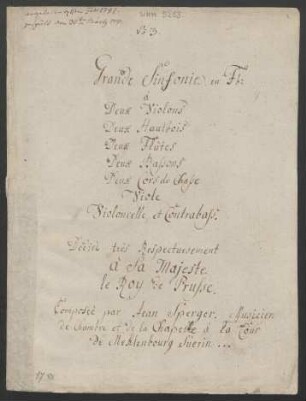 No 3.
Grande Sinfonie en Fb:
à
Deux Violons
Deux Hautbois
Deux Flûtes
Deux Bassons
Deux Cors de Chasse
Viole
Violoncelle, et Contrabass:
Dediée très Respectuesement
à Sa Majeste
le Roy de Prusse.
Composée par Jean Sperger, Musicien
de Chambre et de la Chapelle à la Cour
de Meklenbourg Suerin ...